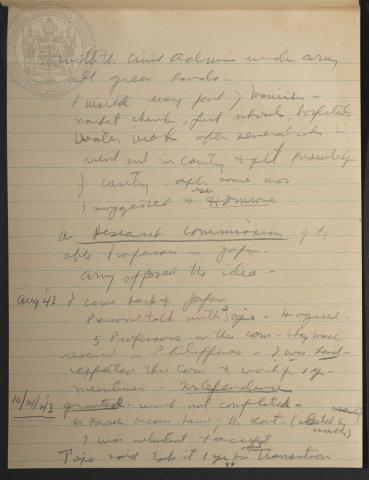 with the Civil Admin under army
all green hands -
I visited every part of Manila -
market, church, schools, hospitals
water works after several wks I
went out in country & get knowledge
of country. after some mos
I suggested to
a Research Commission of the
able Professors in Japan.
army opposed the idea -
Aug '42 I came back to Japan
Personal talk with Tojo - He agreed.
5 Professors on this com - They made
research in Philippines - I was head
of this Com & work for 1 yr
meantime - Independence
10/14/43 granted - work not completed -
I was reluctant to accept
Tojo said take it 1 yr for Transition